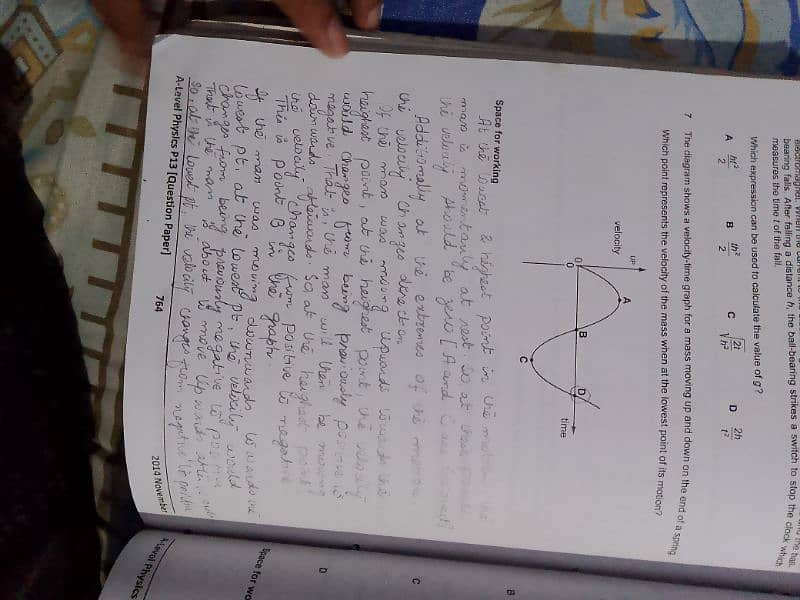 bearing falls. After falling a distance h, the ball-bearing strikes a switch to stop the clock which
measures the time t of the fall.
Which expression can be used to calculate the value of g?
A ht²/2 B th²/2 C √(2t/h²) D 2h/t²
7 The diagram shows a velocity-time graph for a mass moving up and down on the end of a spring.
Which point represents the velocity of the mass when at the lowest point of its motion?
velocity
UP
A
0
0
B
D
time
C
Space for working
At the lowest & highest point in the motion the
mass is momentarily at rest so, at these points
the velocity should be zero [A and C are
Additionally at the extremes of the motion
the velocity changes direction
If the man was moving upwards towards the
heighest point, at the heighest point, the velocity
would changes from being previously positive is
negative. That is, the man will then be moving
downwards afterwards. So at the heighest point
the velocity changes from positive to negative
This is point B in the graph.
If the man was moving downwards towards the
lowest pt. at the lowest pt, the velocity would
changes from being previously negative to positive
That is the man is about to move Upwards
So, at the lowest pt, the velocity changes from negative to positive
A-Level Physics P13 [Question Paper] 764 2014 November
B
C
D
Space for wo
A-Level Physics